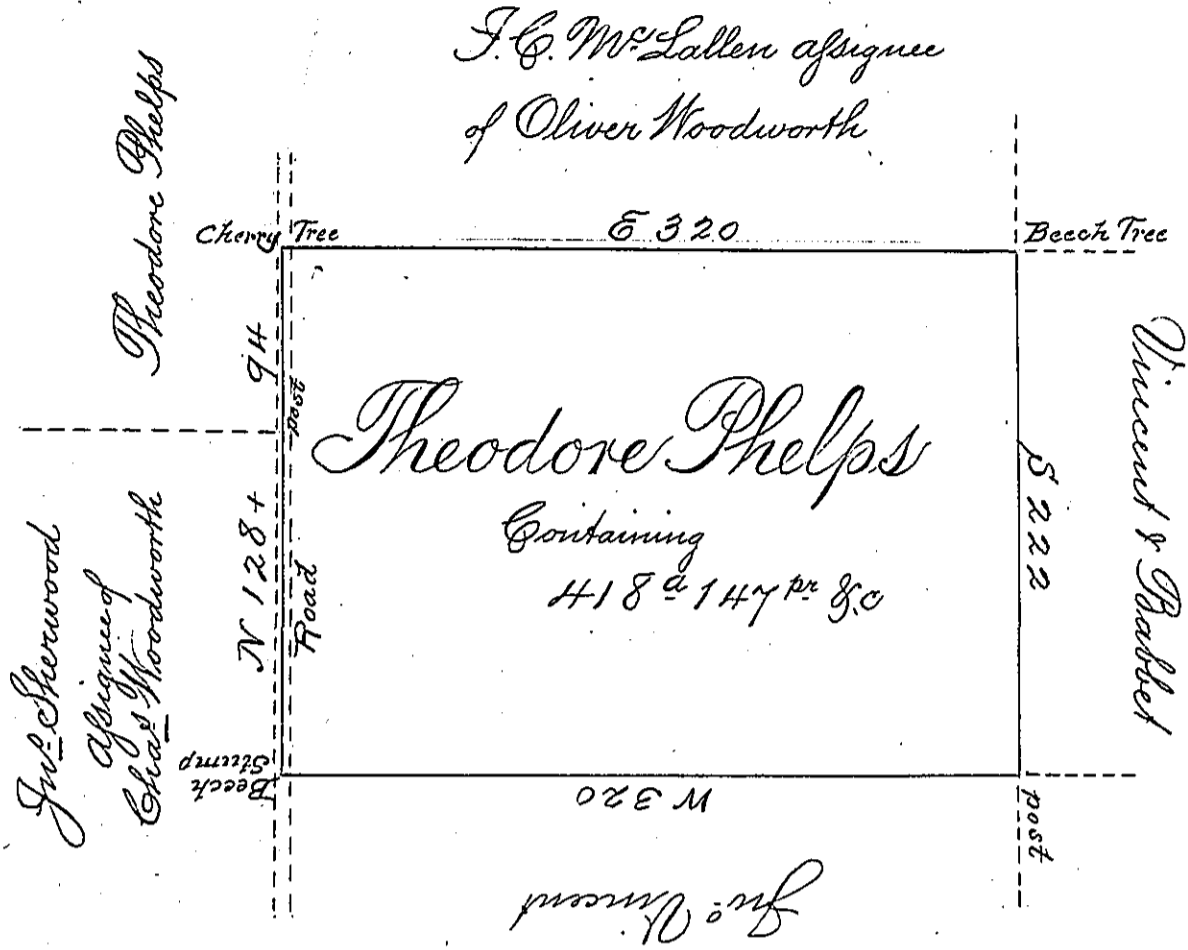 F. C. McLallen assignee
of Oliver Woodworth
Theodore Phelps
Cherry Tree
E 320
Beech Tree
94
post
Theodore Phelps
Containing
418 a 147 pr &c
S 222
Vincent & Babbet
N 128 +
Road
Jno. Sherwood
assignee of
Chas. Woodworth
Beech
Stump
W 320
post
Jno. Vincent